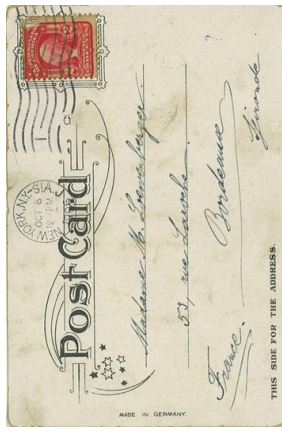 Post Card
NEW YORK, N.Y. STA.
OCT 5
12 PM
Madame M.
53, rue Laroche
Bordeaux
Gironde
France.
THIS SIDE FOR THE ADDRESS.
MADE IN GERMANY.